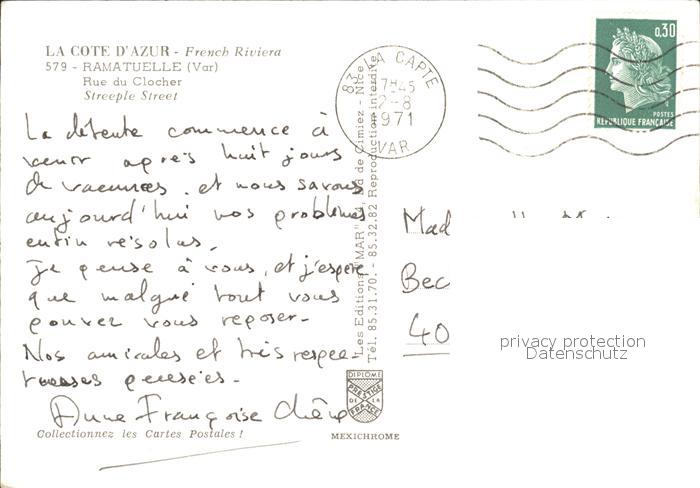 LA COTE D'AZUR - French Riviera
579 - RAMATUELLE (Var)
Rue du Clocher
Streeple Street
La détente commence à
venir après huit jours
de vacances. et nous savons
aujourd'hui vos problèmes
enfin résolus.
Je pense à vous, et j'espère
que malgré tout vous
pouvez vous reposer.
Nos amicales et très respec-
tueuses pensées.
Anne Françoise
Collectionnez les Cartes Postales !
Les Editions "MAR" de Cimiez - Nice
Tél. 85.31.70. - 85.32.82 Reproduction interdite
DIPLOME
PRESTIGE
DE LA
FRANCE
MEXICHROME
83 LA CAPTE
17H45
2-8
1971
VAR
0,30
POSTES
REPUBLIQUE FRANÇAISE
Mad
Bec
40
privacy protection
Datenschutz